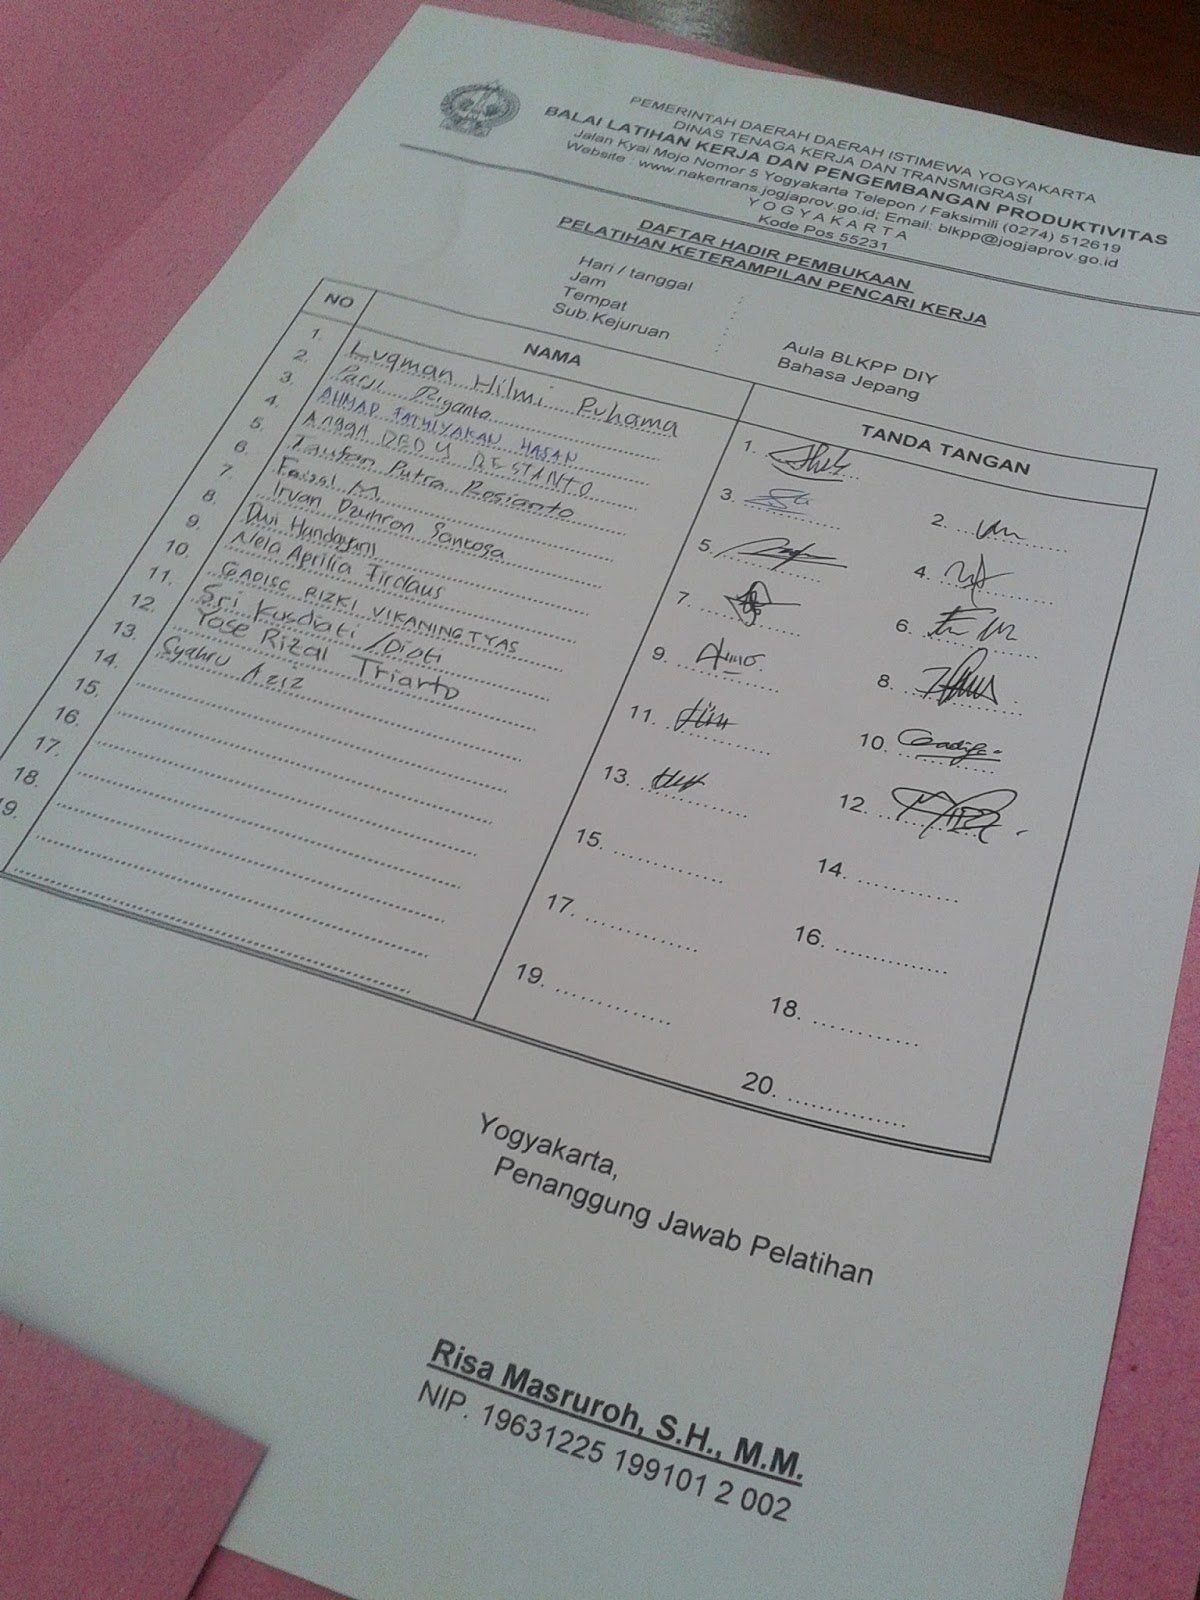 PEMERINTAH DAERAH DAERAH ISTIMEWA YOGYAKARTA
DINAS TENAGA KERJA DAN TRANSMIGRASI
BALAI LATIHAN KERJA DAN PENGEMBANGAN PRODUKTIVITAS
Jalan Kyai Mojo Nomor 5 Yogyakarta Telepon / Faksimili (0274) 512619
Website : www.nakertrans.jogjaprov.go.id; Email: blkpp@jogjaprov.go.id
Y O G Y A K A R T A
Kode Pos 55231
DAFTAR HADIR PEMBUKAAN
PELATIHAN KETERAMPILAN PENCARI KERJA
Hari / tanggal :
Jam :
Tempat : Aula BLKPP DIY
Sub.Kejuruan : Bahasa Jepang
NO NAMA TANDA TANGAN
1. Luqman Hilmi Ruhama
2. Riyanto
3. AHMAD HASAN
4. Angga DEDY RESTANTO
5. Taufan Putra Rosianto
6. Faizal M
7. Irvan Dzuhron Santosa
8. Dwi Handayani
9. Nela Aprilia Firdaus
10. GADISC RIZKI VIKANINGTYAS
11. Sri Kusdiati / Diati
12. Yose Rizal Trianto
13. Syahru Aziz
14.
15.
16.
17.
18.
19.
1. 2.
3. 4.
5. 6.
7. 8.
9. 10.
11. 12.
13. 14.
15. 16.
17. 18.
19. 20.
Yogyakarta,
Penanggung Jawab Pelatihan
Risa Masruroh, S.H., M.M.
NIP. 19631225 199101 2 002